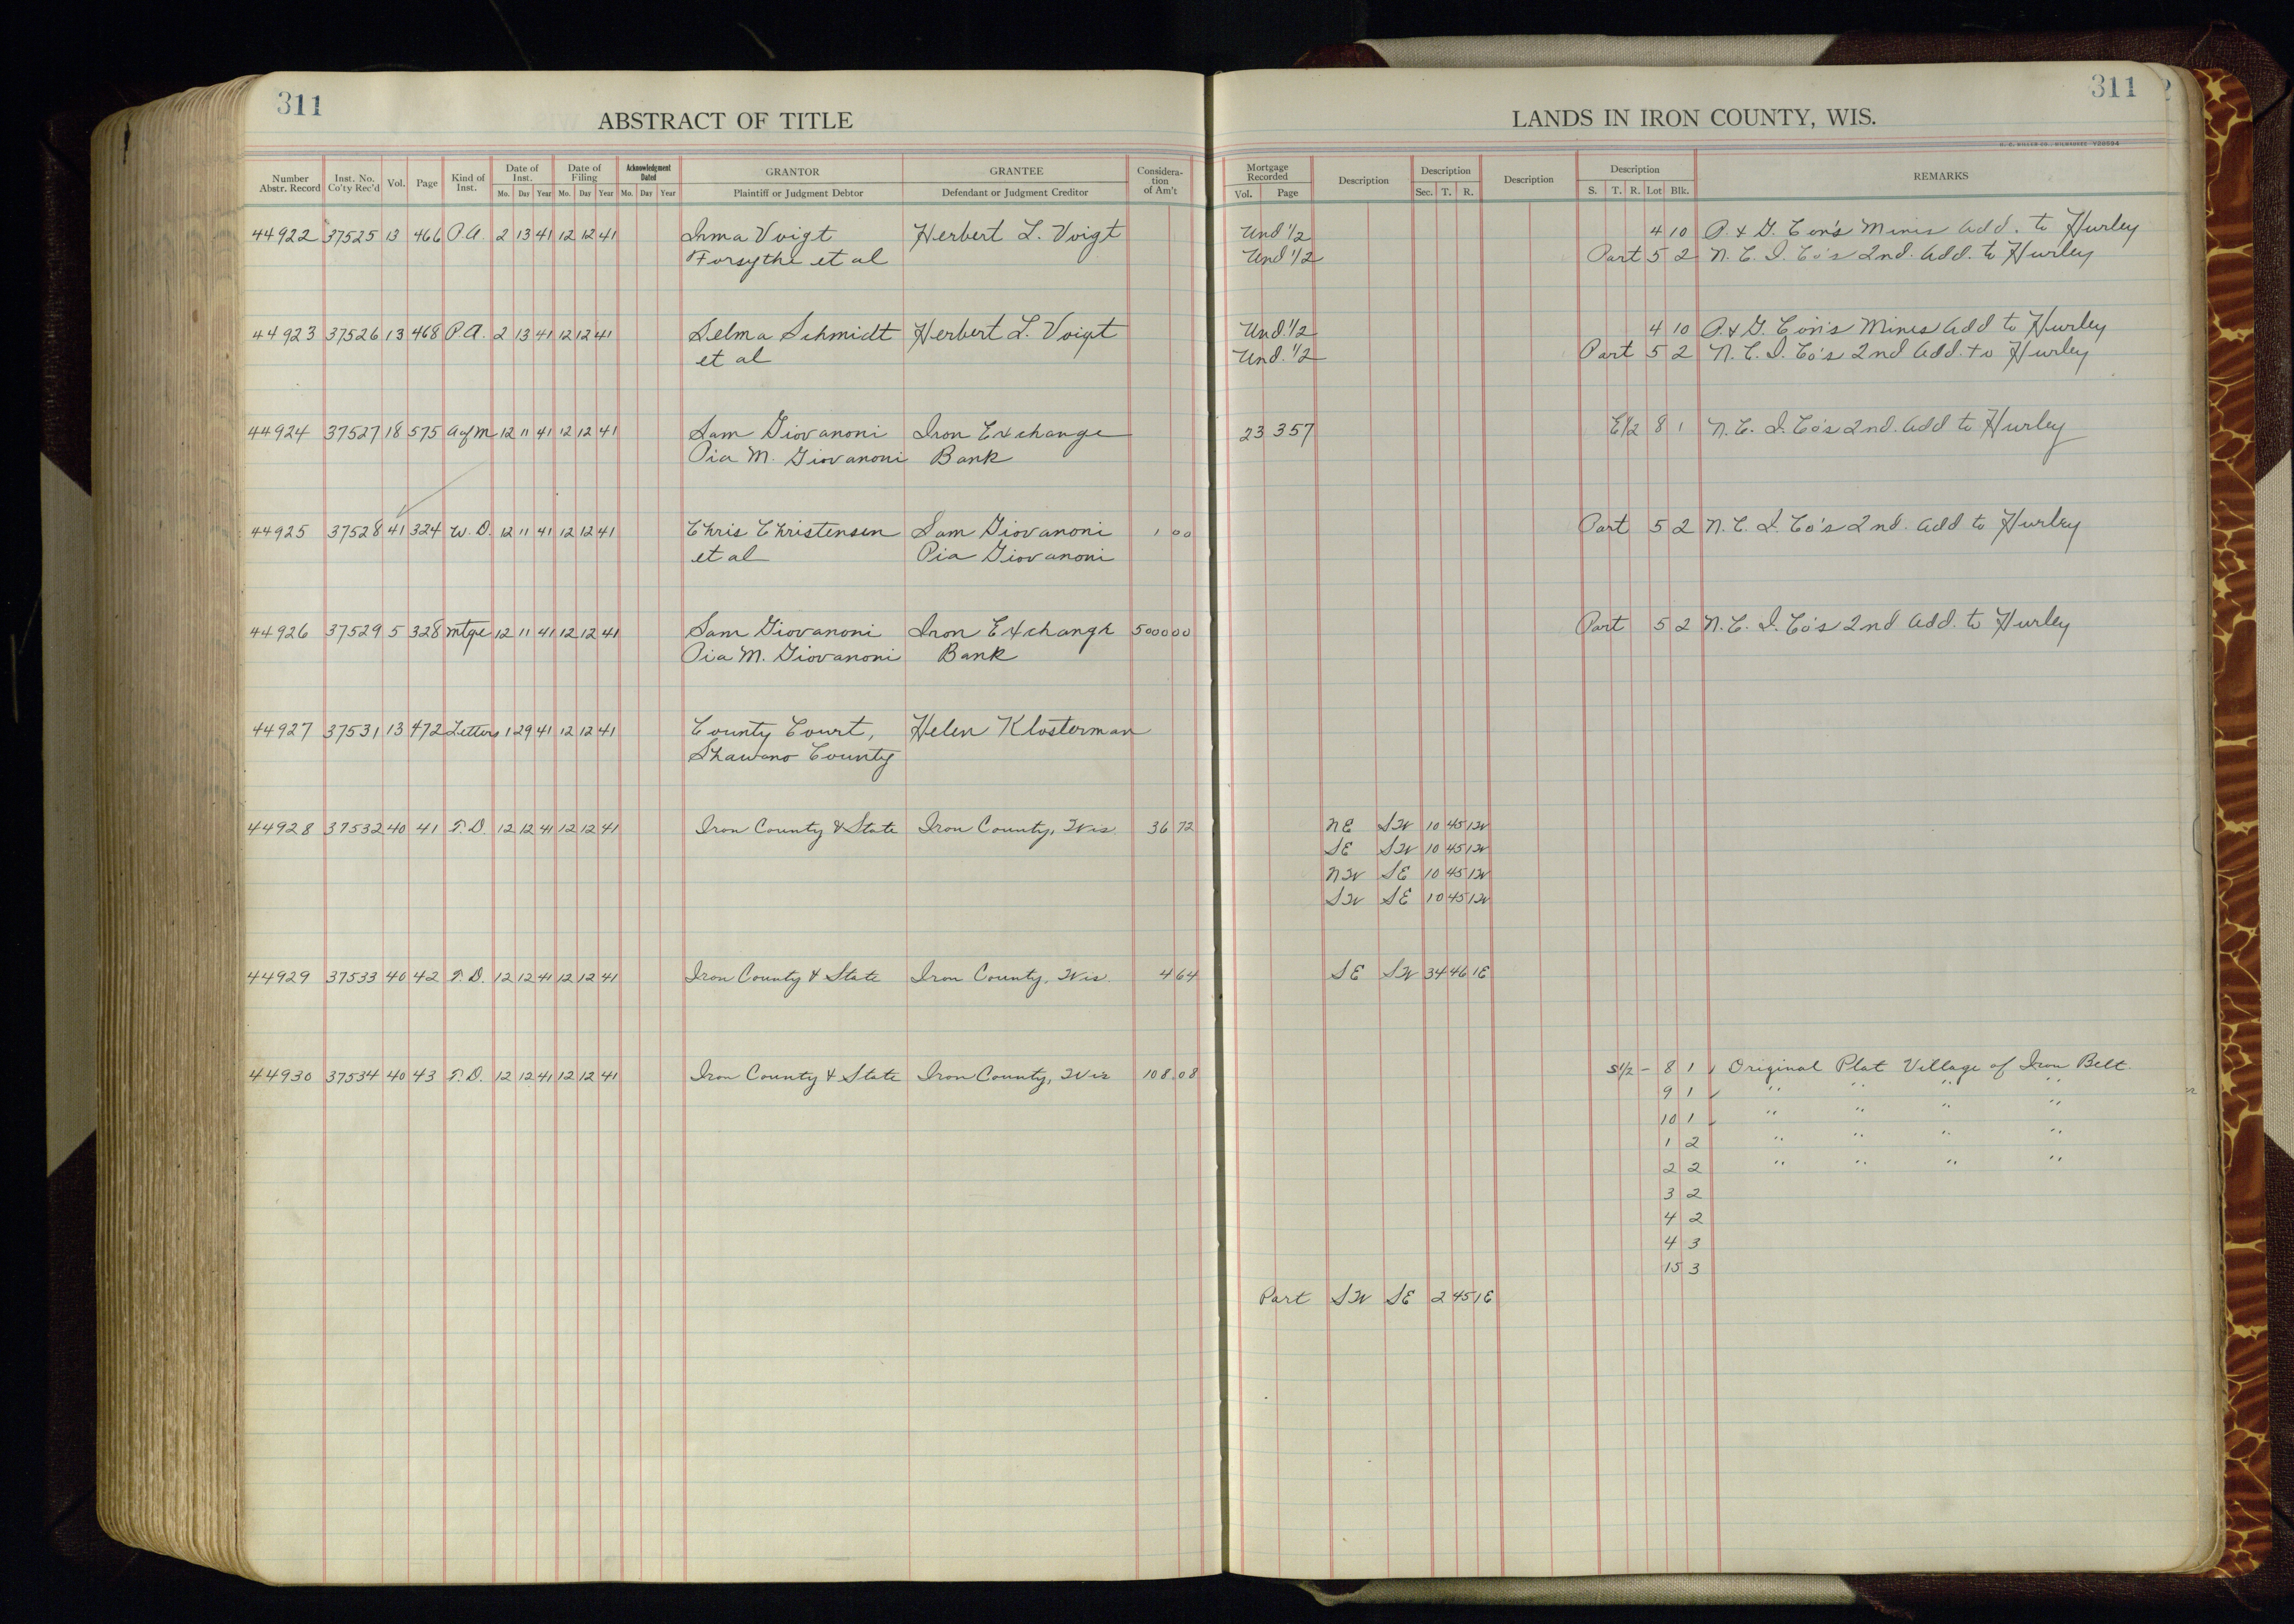 311
ABSTRACT OF TITLE
LANDS IN IRON COUNTY, WIS.
311
Number Abstr. Record | Inst. No. Co'ty Rec'd | Vol. | Page | Kind of Inst. | Date of Inst. Mo. Day Year | Date of Filing Mo. Day Year | Acknowledgment Dated Mo. Day Year | GRANTOR Plaintiff or Judgment Debtor | GRANTEE Defendant or Judgment Creditor | Consideration of Am't | Mortgage Recorded Vol. Page | Description | Description Sec. T. R. | Description | Description S. T. R. Lot Blk. | REMARKS
44922 37525 13 466 P.A. 2 13 41 12 12 41 Irma Voigt Herbert L. Voigt Und 1/2 4 10 P. & G. Con's Mines Add. to Hurley
Forsythe et al Und 1/2 Part 5 2 N. C. I. Co's 2nd. Add. to Hurley
44923 37526 13 468 P.A. 2 13 41 12 12 41 Selma Schmidt Herbert L. Voigt Und. 1/2 4 10 P. & G. Con's Mines Add to Hurley
et al Und. 1/2 Part 5 2 N. C. I. Co's 2nd Add. to Hurley
44924 37527 18 575 A of M 12 11 41 12 12 41 Sam Giovanoni Iron Exchange 23 357 E 1/2 8 1 N. C. I. Co's 2nd. Add to Hurley
Pia M. Giovanoni Bank
44925 37528 41 324 W. D. 12 11 41 12 12 41 Chris Christensen Sam Giovanoni 1 00 Part 5 2 N. C. I. Co's 2nd. Add to Hurley
et al Pia Giovanoni
44926 37529 5 328 mtge 12 11 41 12 12 41 Sam Giovanoni Iron Exchange 5000 00 Part 5 2 N. C. I. Co's 2nd Add. to Hurley
Pia M. Giovanoni Bank
44927 37531 13 472 Letters 1 29 41 12 12 41 County Court, Helen Klosterman
Shawano County
44928 37532 40 41 T. D. 12 12 41 12 12 41 Iron County & State Iron County, Wis. 36 72 NE SW 10 45 1W
SE SW 10 45 1W
NW SE 10 45 1W
SW SE 10 45 1W
44929 37533 40 42 T. D. 12 12 41 12 12 41 Iron County & State Iron County, Wis. 4 64 SE SW 34 46 1E
44930 37534 40 43 T. D. 12 12 41 12 12 41 Iron County & State Iron County, Wis 108.08 S 1/2 - 8 1 Original Plat Village of Iron Belt.
9 1 " " " "
10 1 " " " "
1 2 " " " "
2 2 " " " "
3 2
4 2
4 3
15 3
Part SW SE 2 45 1E